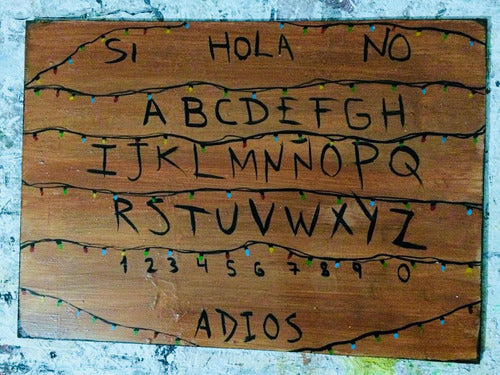 SI HOLA NO
ABCDEFGH
IJKLMNÑOPQ
RSTUVWXYZ
1 2 3 4 5 6 7 8 9 0
ADIOS